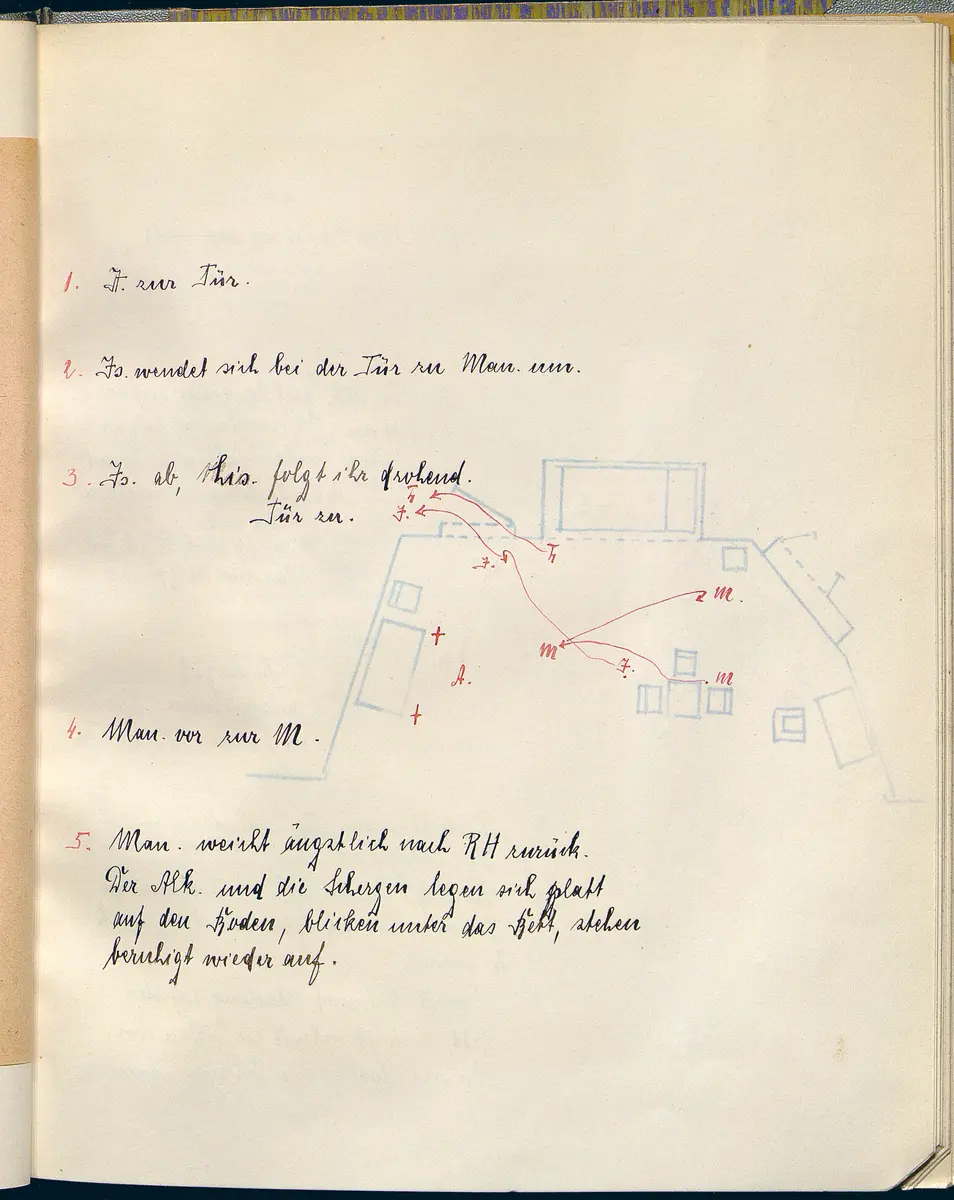 1. I. zur Tür.
2. Is. wendet sich bei der Tür zu Man. um.
3. Is. ab, This. folgt ihr drohend.
Tür zu.
T.
I.
I.
T.
M.
M
I.
M
A.
4. Man. vor zur M.
5. Man. weicht ängstlich nach RH zurück.
Der Alk. und die Schergen legen sich platt
auf den Boden, blicken unter das Bett, stehen
beruhigt wieder auf.